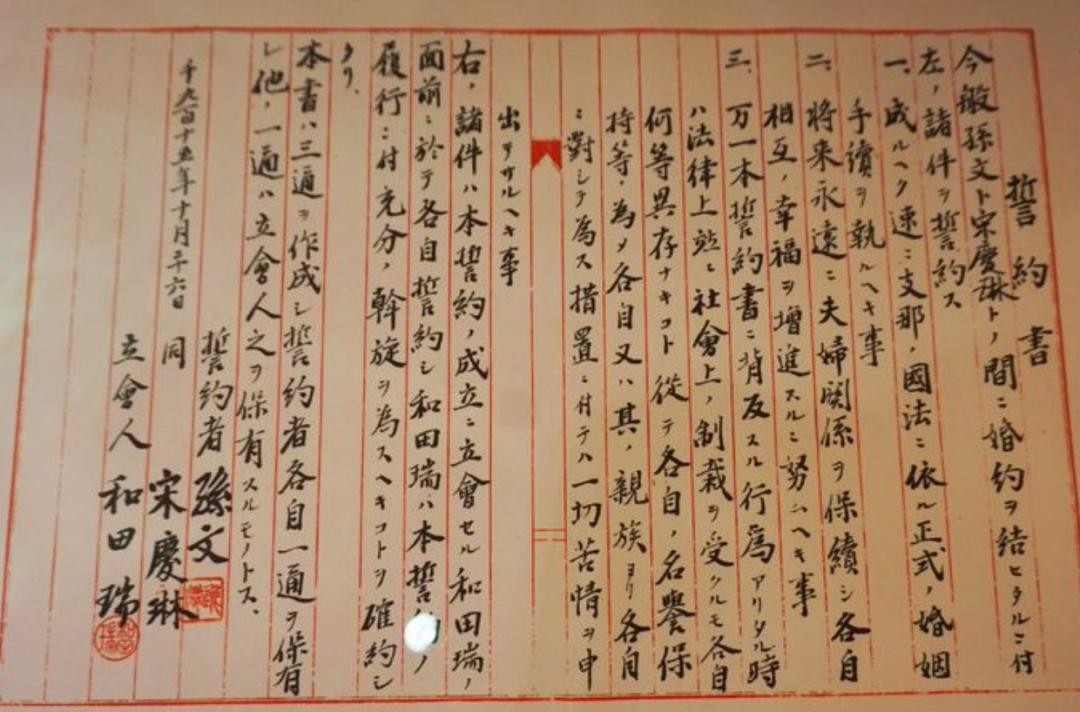 誓約書
今般孫文ト宋慶琳トノ間ニ婚約ヲ結ヒタルニ付
左ノ諸件ヲ誓約ス
一、成ルヘク速ニ支那ノ國法ニ依ル正式ノ婚姻
手續ヲ執ルヘキ事
二、將来永遠ニ夫婦関係ヲ保續シ各自
相互ノ幸福ヲ増進スルニ努ムヘキ事
三、万一本誓約書ニ背反スル行為アリタル時
ハ法律上竝ニ社會上ノ制裁ヲ受クルモ各自
何等異存ナキコト從テ各自ノ名譽保
持等ノ為メ各自又ハ其ノ親族ヨリ各自
ニ對シテ為ス措置ニ付テハ一切苦情ヲ申
出テサルヘキ事
右ノ諸件ハ本誓約ノ成立ニ立會セル和田瑞ノ
面前ニ於テ各自誓約シ和田瑞ハ本誓約ノ
履行ニ付充分ノ斡旋ヲ為スヘキコトヲ確約シ
タリ、
本書ハ三通ヲ作成シ誓約者各自一通ヲ保有
シ他ノ一通ハ立會人之ヲ保有スルモノトス、
誓約者 孫文
同 宋慶琳
千九百十五年十月二十六日
立會人 和田瑞